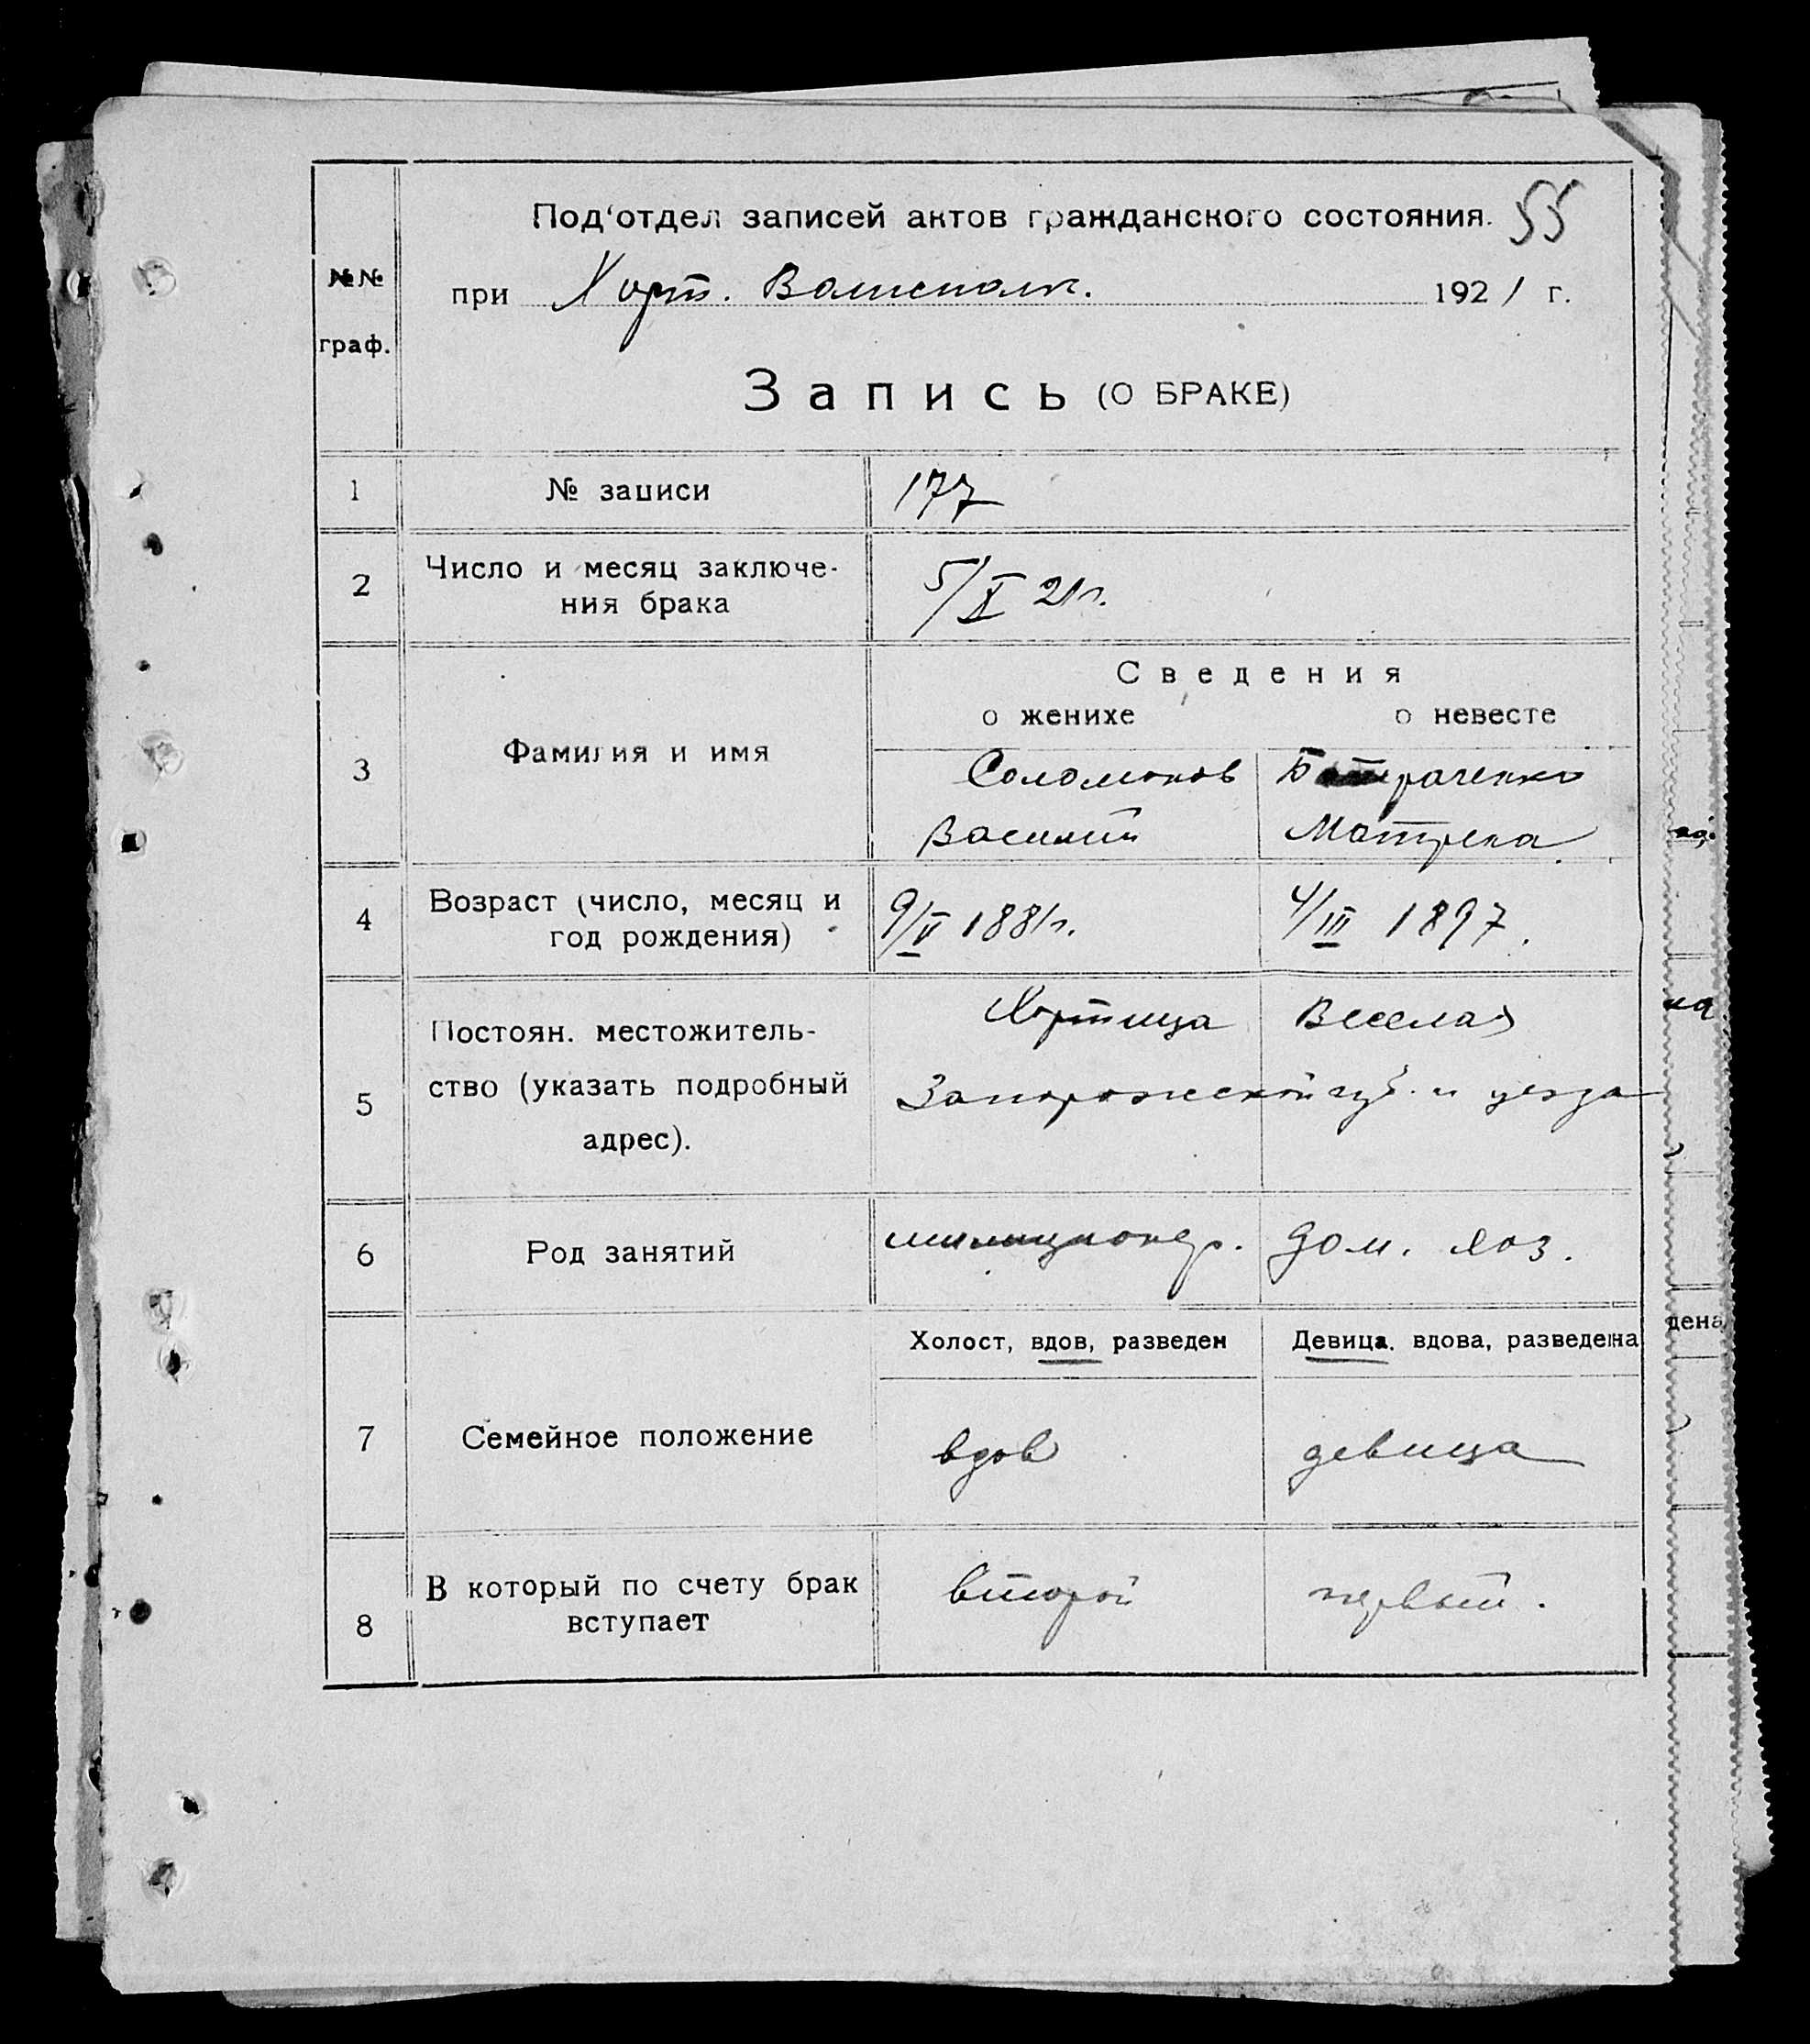 №№
граф.
Под'отдел записей актов гражданского состояния. 55
при Хорт. Волисполк. 1921 г.
Запись (О БРАКЕ)
1 № записи 177
2 Число и месяц заключе-
ния брака
5/X 21 г.
Сведения
о женихе о невесте
3 Фамилия и имя
Соломонов
Василий
Батраченко
Матрена
4 Возраст (число, месяц и
год рождения)
9/V 1881 г. 4/III 1897.
5 Постоян. местожитель-
ство (указать подробный
адрес).
Хортица Веселая
Запорожской губ. и уезда
6 Род занятий
милиционер. дом. хоз.
Холост, вдов, разведен Девица, вдова, разведена
7 Семейное положение
вдов девица
8 В который по счету брак
вступает
второй первый.
дена